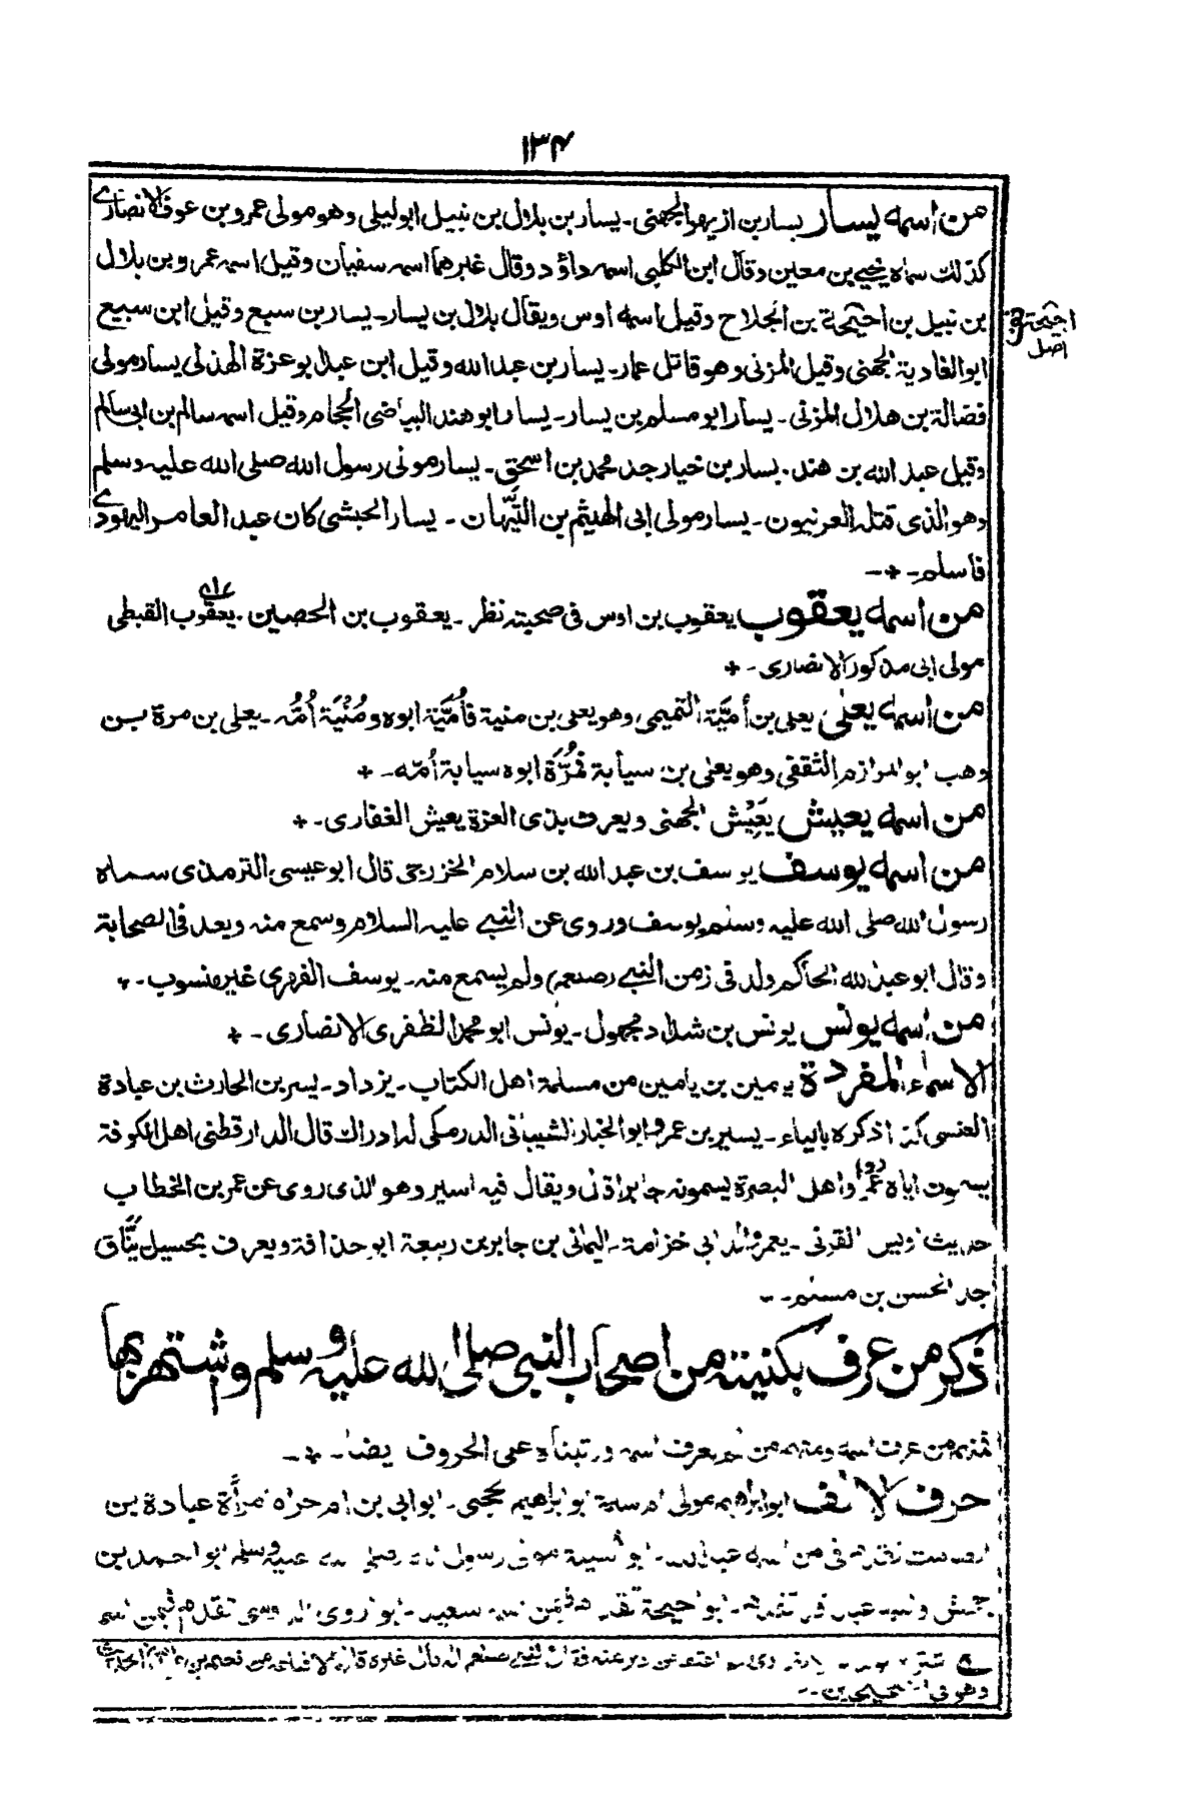 ۱۳۴
من اسمه يسار يسار بن ازيهر الجهنى ـ يسار بن بلال بن نبيل ابو ليلى وهو مولى عمرو بن عوف الانصارى
كذلك سماه يحيى بن معين وقال ابن الكلبى اسمه داؤد وقال غيرهما اسمه سفيان وقيل اسمه عمرو بن بلال
بن نبيل بن احيحة بن الجلاح وقيل اسمه اوس ويقال بلال بن يسار ـ يسار بن سبع وقيل ابن سبيع
احيحة
اصل
ابو الغادية الجهنى وقيل المزنى وهو قاتل عمار ـ يسار بن عبد الله وقيل ابن عبد ابو عزة الهذلى يسار مولى
فضالة بن هلال المزنى ـ يسار ابو مسلم بن يسار ـ يسار ابو هند البياضى الحجام وقيل اسمه سالم بن ابى سالم
وقيل عبد الله بن هند ـ يسار بن خيار جد محمد بن اسحق ـ يسار مولى رسول الله صلى الله عليه وسلم
وهو الذى قتله العرنيون ـ يسار مولى ابى الهيثم بن التَّيّهان ـ يسار الحبشى كان عبد العامر اليهودى
فاسلم ـ + ـ
من اسمه يعقوب يعقوب بن اوس فى صحبته نظر ـ يعقوب بن الحصين ـ يعقوب القبطى
مولى ابى مذكور الانصارى ـ +
من اسمه يعلى يعلى بن أميَّة التميمى وهو يعلى بن منية فأُمَيَّة ابوه ومُنْيَة أُمُّه ـ يعلى بن مرة بن
وهب ابو المرازم الثقفى وهو يعلى بن سيابة فمُرَّة ابوه سيابة أمّه ـ +
من اسمه يعيش يَعِيْش الجهنى ويعرف بذى الغرة يعيش الغفارى ـ +
من اسمه يوسف يوسف بن عبد الله بن سلام الخزرجى قال ابو عيسى الترمذى سماه
رسول الله صلى الله عليه وسلم يوسف وروى عن النبى عليه السلام وسمع منه ويعد فى الصحابة
وقال ابو عبد الله الحاكم ولد فى زمن النبى (صلعم) ولم يسمع منه ـ يوسف الفهرى غير منسوب ـ +
من اسمه يونس يونس بن شداد مجهول ـ يونس ابو محمد الظفرى الانصارى ـ +
الاسماء المفردة يامين بن يامين من مسلمة اهل الكتاب ـ يزداد ـ يسر بن الحارث بن عبادة
العنسى كذا ذكره بالياء ـ يسير بن عمرو ابو الخيار الشيبانى الدرمكى له ادراك قال الدارقطنى اهل الكوفة
يسمون اباه عمرا واهل البصرة يسمونه جابرا ويقال فيه اسير وهو الذى روى عن عمر بن الخطاب
حديث اويس القرنى ـ يعمر والد ابى خزامة ـ اليمان بن جابر بن ربيعة ابو حذافة ويعرف بحسيل ينَّاق
جد الحسن بن مسلم ـ
ذكر من عرف بكنيته من اصحاب النبى صلى الله عليه وسلم واشتهر بها
فمنهم من عرف اسمه ومنهم من لم يعرف اسمه ورتبناه على الحروف ايضا ـ + ـ
حرف الالف ابو ابراهيم مولى ام سلمة ابو ابراهيم الحجبى ـ ابو ابى بن ام حرام امرأة عبادة بن
الصامت تقدم فى من اسمه عبد الله ـ ابو اثيلة مولى رسول الله صلى الله عليه وسلم ابو احمد بن
جحش واسمه عبد قد تقدم ـ ابو احيحة تقدم فيمن اسمه سعيد ـ ابو اروى الدوسى تقدم فيمن اسمه